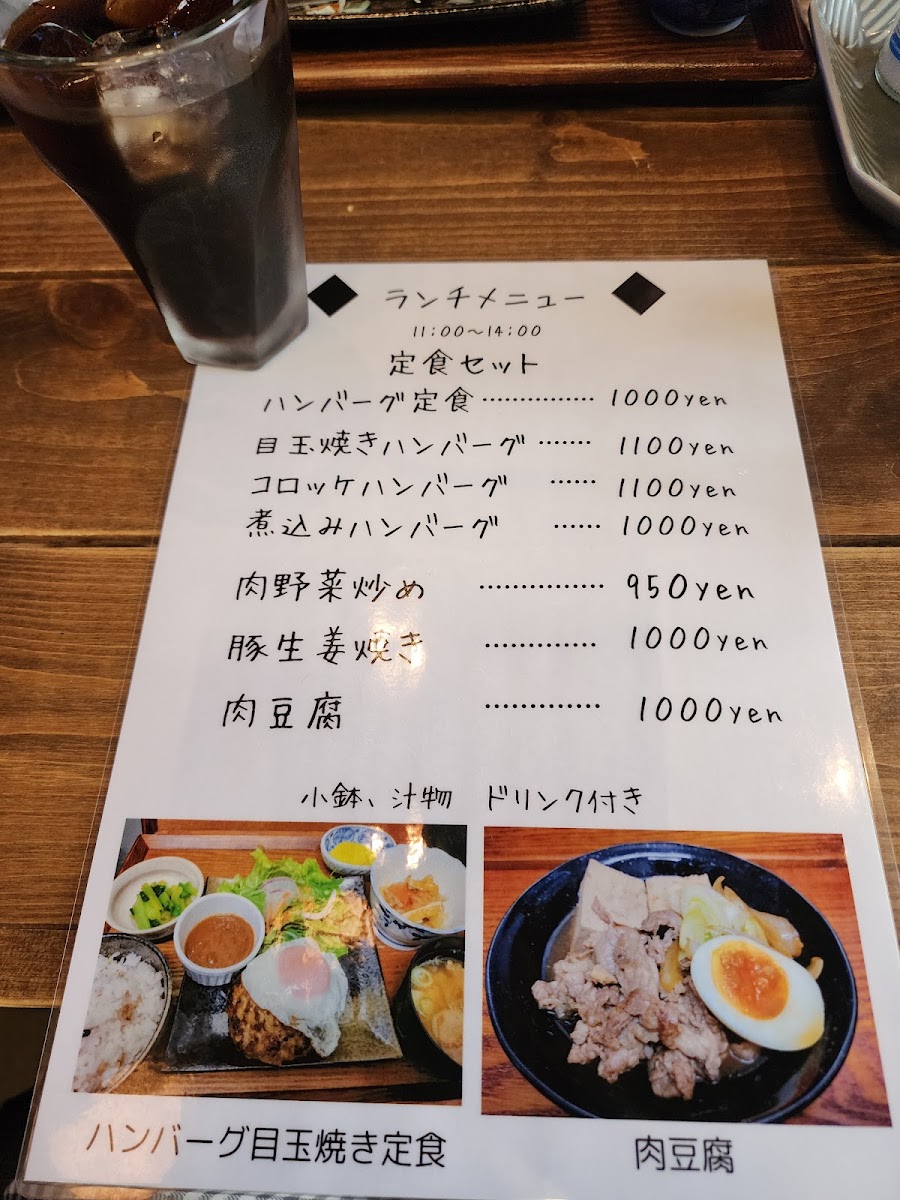 ◆ ランチメニュー ◆
11:00～14:00
定食セット
ハンバーグ定食…………… 1000yen
目玉焼きハンバーグ……… 1100yen
コロッケハンバーグ …… 1100yen
煮込みハンバーグ …… 1000yen
肉野菜炒め …………… 950yen
豚生姜焼き ………… 1000yen
肉豆腐 ………… 1000yen
小鉢、汁物 ドリンク付き
ハンバーグ目玉焼き定食
肉豆腐